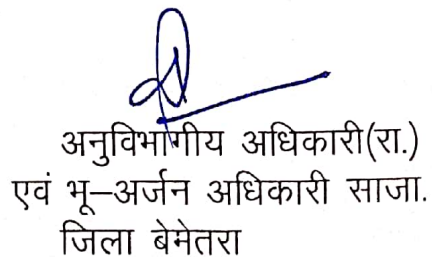 अनुविभागीय अधिकारी(रा.)
एवं भू–अर्जन अधिकारी साजा.
जिला बेमेतरा